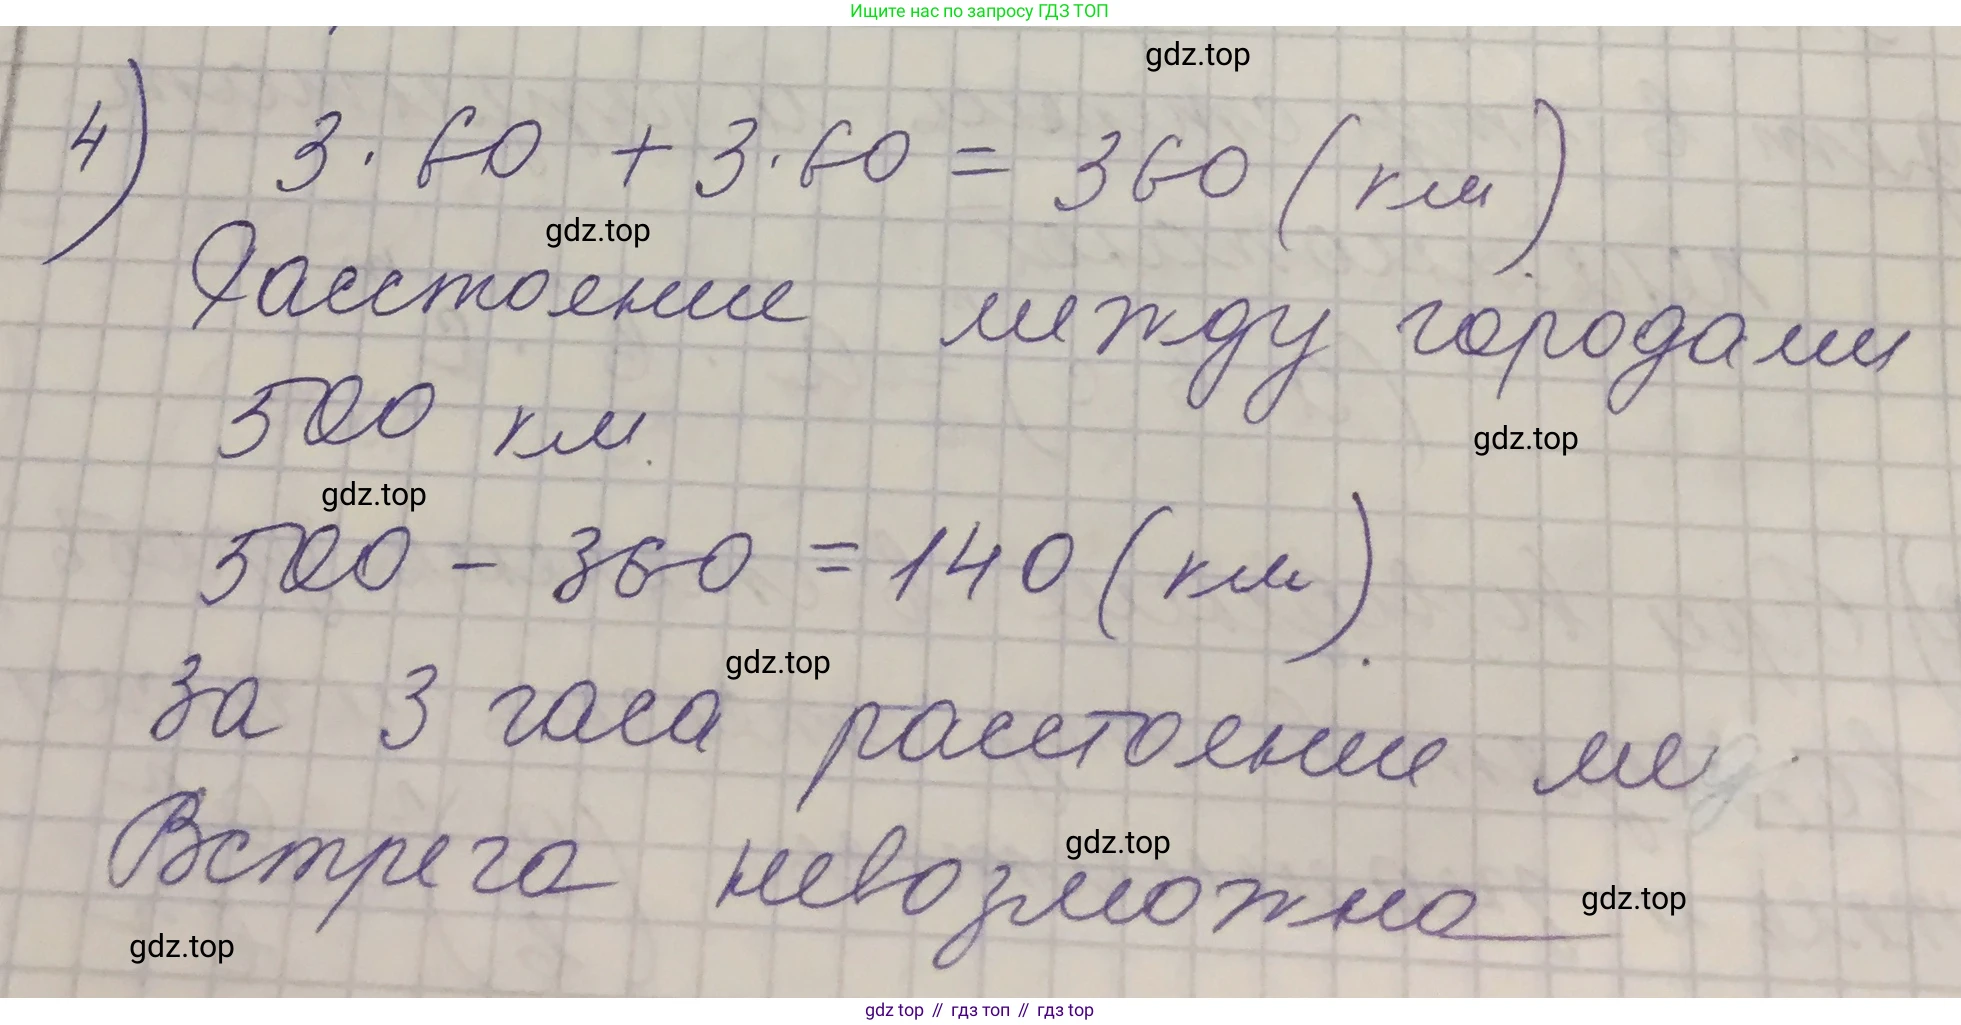 Ищите нас по запросу ГДЗ ТОП
gdz.top
4) 3 · 60 + 3 · 60 = 360 (км)
gdz.top
Расстояние между городами
500 км.
gdz.top
gdz.top
500 - 360 = 140 (км).
gdz.top
За 3 часа расстояние ме
Встреча невозможна
gdz.top
gdz.top
gdz.top
gdz top // гдз топ // гдз top